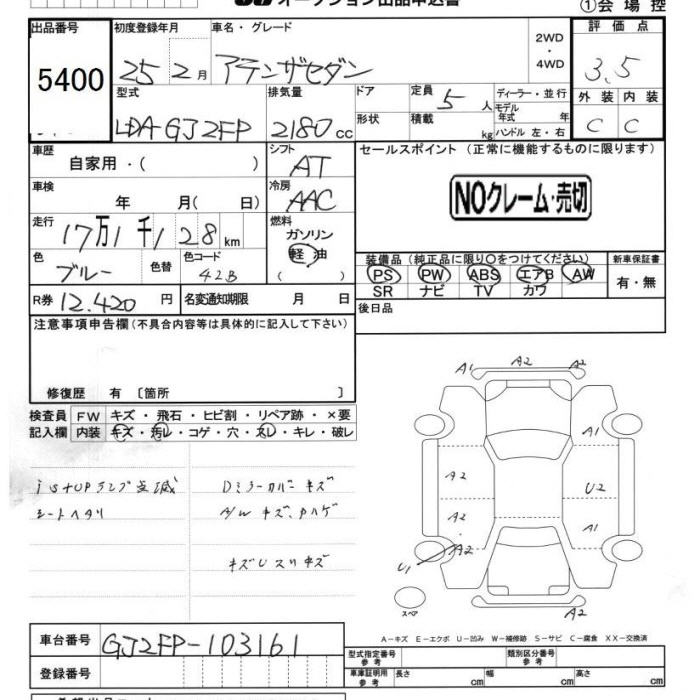 オークション出品申込書
①会場控
出品番号
5400
初度登録年月
25 2月
車名・グレード
アテンザセダン
2WD
・
4WD
評価点
3.5
型式
LDA-GJ2FP
排気量
2180cc
ドア
形状
定員
5人
積載
kg
ディーラー・並行
モデル年式 年
ハンドル 左・右
外装 内装
C C
車歴
自家用・( )
シフト
AT
セールスポイント (正常に機能するものに限ります)
NOクレーム・売切
車検
年 月( 日)
冷房
AAC
走行
17万1千128km
燃料
ガソリン
軽油
( )
色
ブルー
色替
色コード
42B
装備品 (純正品に限り○をつけてください)
PS PW ABS エアB AW
SR ナビ TV カワ
新車保証書
有・無
R券 12,420円
名変通知期限 月 日
後日品
注意事項申告欄 (不具合内容等は具体的に記入して下さい)
修復歴 有 〔箇所 〕
検査員記入欄
FW キズ・飛石・ヒビ割・リペア跡・×要
内装 キズ・汚レ・コゲ・穴・スレ・キレ・破レ
istopランプ点滅
シートヘタリ
Dミラーカバーキズ
A/Wキズ、カハゲ
キズUスリキズ
A1 A2 A2
A1
A2 U2
A2 A1
U1 A2
スペア
A2
A－キズ E－エクボ U－凹み W－補修跡 S－サビ C－腐食 XX－交換済
車台番号
GJ2FP-103161
登録番号
型式指定番号
参考
類別区分番号
参考
車庫証明用
参考
長さ cm
幅 cm
高さ cm